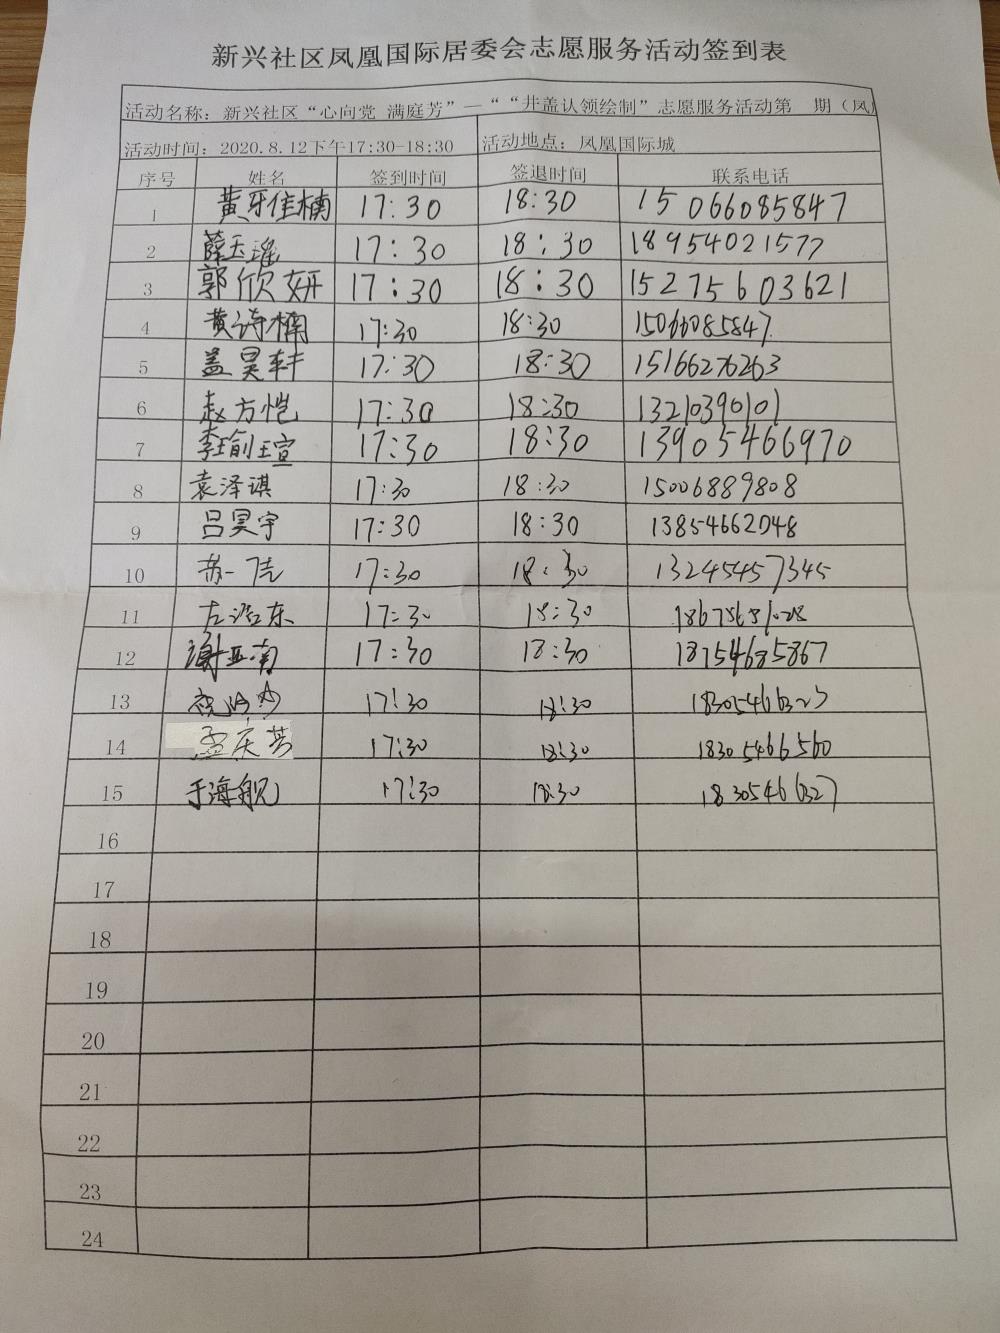 新兴社区凤凰国际居委会志愿服务活动签到表
活动名称：新兴社区“心向党 满庭芳”—““井盖认领绘制”志愿服务活动第 期（凤
活动时间：2020.8.12下午17:30-18:30 活动地点：凤凰国际城
序号 姓名 签到时间 签退时间 联系电话
1 黄牙佳楠 17:30 18:30 15066085847
2 薛玉瑶 17:30 18:30 18954021577
3 郭欣妍 17:30 18:30 15275603621
4 黄诗楠 17:30 18:30 15066085847
5 盖昊轩 17:30 18:30 15166276263
6 赵方恺 17:30 18:30 13210390101
7 李瑜瑄 17:30 18:30 13905466970
8 袁泽琪 17:30 18:30 15006889808
9 吕昊宇 17:30 18:30 13854662048
10 苏一 17:30 18:30 13245457345
11 左浩东 17:30 18:30
12 谢亚南 17:30 18:30 18754685867
13 17:30 18:30
14 孟庆芳 17:30 18:30 18305466560
15 于海舰 17:30 18:30 18305466327
16
17
18
19
20
21
22
23
24